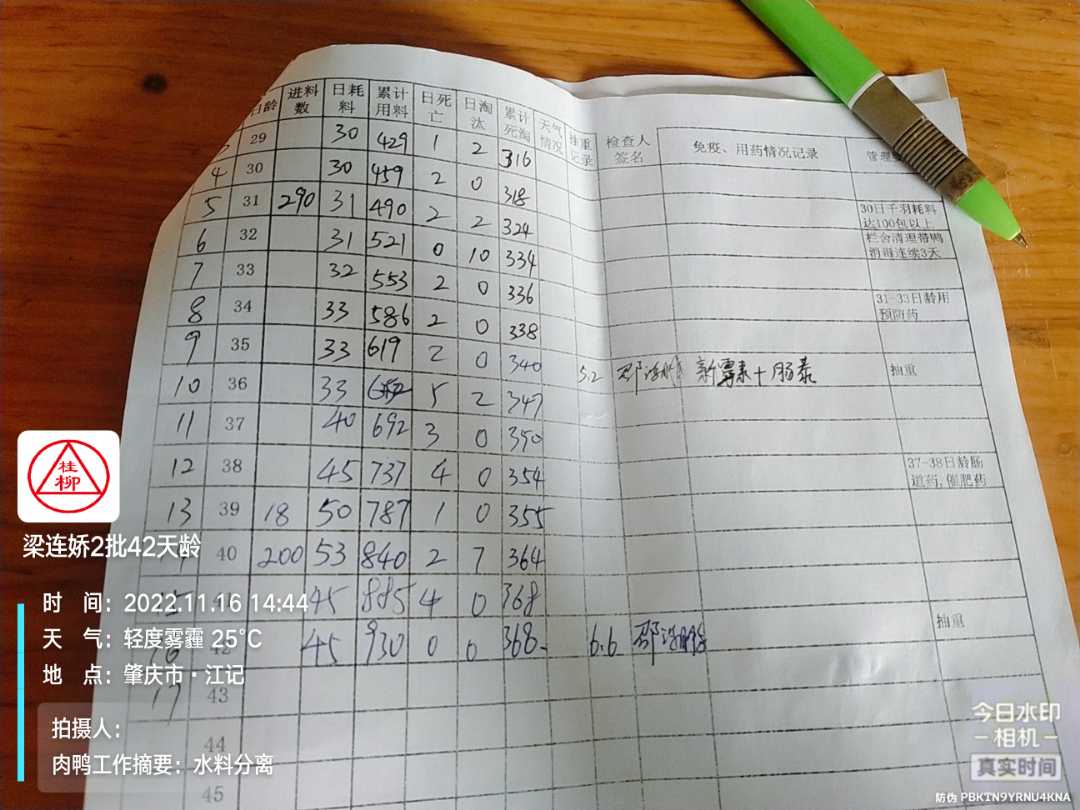 日龄 进料数 日耗料 累计用料 日死亡 日淘汰 累计死淘 天气情况 抽重记录 检查人签名 免疫、用药情况记录
29 30 429 1 2 316
4 30 30 459 2 0 318
5 31 290 31 490 2 2 324 30日千羽耗料达100包以上
6 32 31 521 0 10 334 栏舍清理带鸭消毒连续3天
7 33 32 553 2 0 336
8 34 33 586 2 0 338 31-33日龄用预防药
9 35 33 619 2 0 340 5.2 新霉素+肠泰 抽重
10 36 33 652 5 2 347
11 37 40 692 3 0 350
12 38 45 737 4 0 354 37-38日龄肠道药,催肥药
13 39 18 50 787 1 0 355
40 200 53 840 2 7 364
45 885 4 0 368
45 930 0 0 368 6.6 抽重
17 43
44
45
桂柳
梁连娇2批42天龄
时 间：2022.11.16 14:44
天 气：轻度雾霾 25℃
地 点：肇庆市·江记
拍摄人：
肉鸭工作摘要：水料分离
今日水印
-相机-
真实时间
防伪 PBKTN9YRNU4KNA